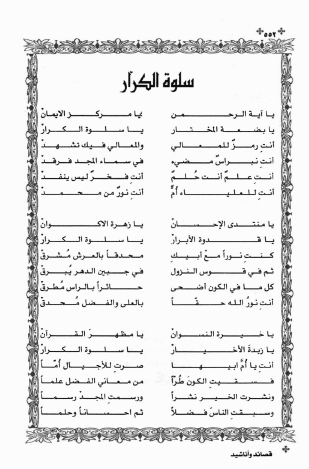 ٥٥٢
سلوة الكرار
يا آية الرحمن يا مركز الايمان
يا بضعة المختار يا سلوة الكرار
أنت رمز للمعالي والمعالي فيك تشهد
أنت نبراس مضيء في سماء المجد فرقد
أنت علم أنت حلم أنت فخر ليس ينفد
أنت للعلياء أم أنت نور من محمد
يا منتدى الإحسان يا زهرة الاكوان
يا قدوة الأبرار يا سلوة الكرار
كنت نوراً مع أبيك محدقاً بالعرش مشرق
ثم في قوس النزول في جبين الدهر يبرق
كل ما في الكون اضحى حائراً بالراس مطرق
أنت نور الله حقاً بالعلى والفضل محدق
يا خيرة النسوان يا مظهر القرآن
يا زبدة الأخيار يا سلوة الكرار
أنت يا أم أبيها صرت للأجيال أما
فسقيت الكون طراً من معاني الفضل علما
ونشرت الخير نشراً ورسمت المجد رسما
وسبقت الناس فضلاً ثم احساناً وحلما
قصائد وأناشيد